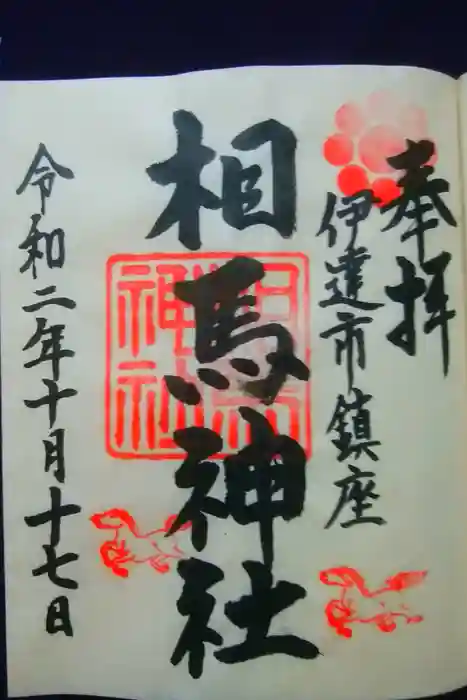 奉拝
伊達市鎮座
相馬神社
相馬神社
令和二年十月十七日